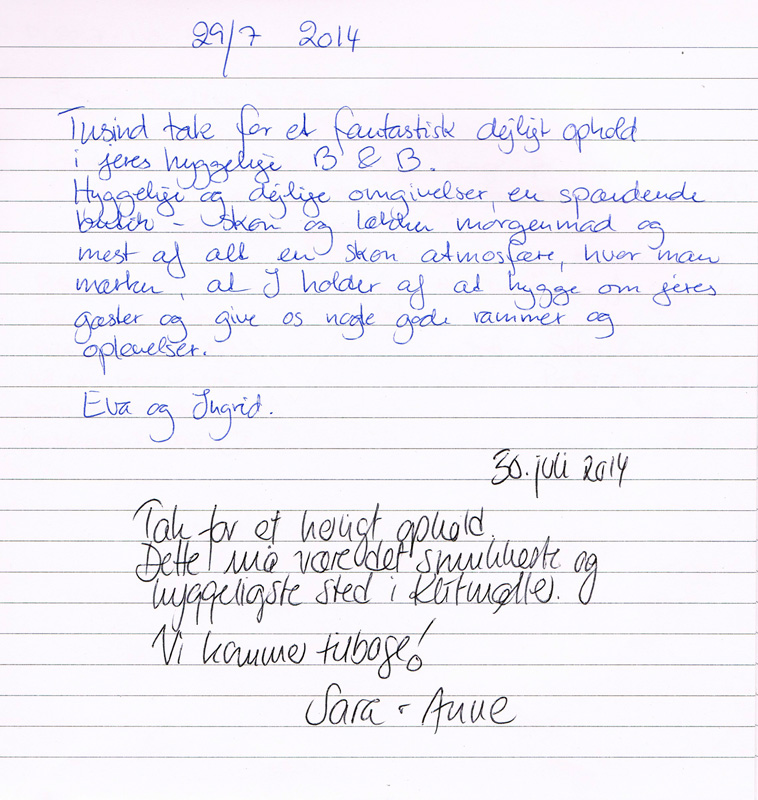 29/7 2014
Tusind tak for et fantastisk dejligt ophold
i jeres hyggelige B & B.
Hyggelige og dejlige omgivelser, en spændende
butik - skøn og lækker morgenmad og
mest af alt en skøn atmosfære, hvor man
mærker, at I holder af at hygge om jeres
gæster og give os nogle gode rammer og
oplevelser.
Eva og Ingrid.
30. juli 2014
Tak for et herligt ophold.
Dette må være det smukkeste og
hyggeligste sted i Klitmøller.
Vi kommer tilbage!
Sara + Anne